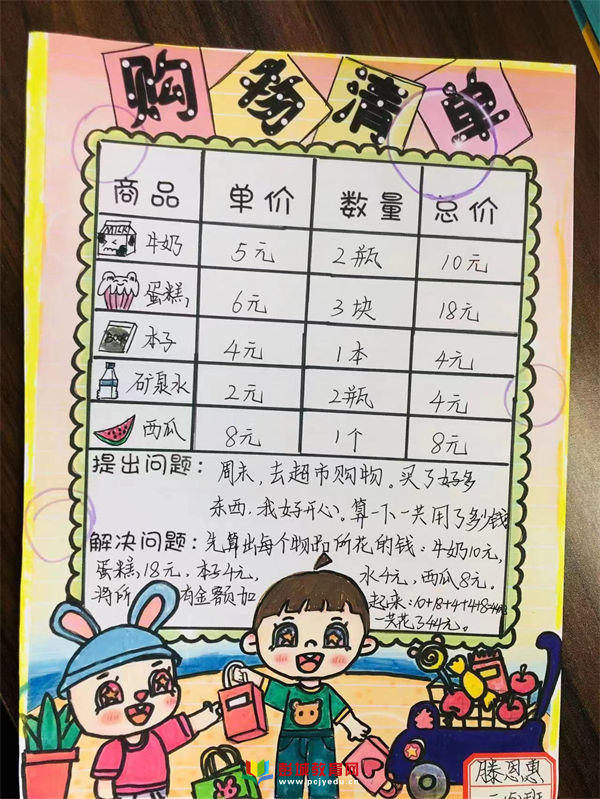 购物清单
商品 单价 数量 总价
MILK 牛奶 5元 2瓶 10元
蛋糕 6元 3块 18元
BOOK 本子 4元 1本 4元
矿泉水 2元 2瓶 4元
西瓜 8元 1个 8元
提出问题：周末，去超市购物。买了好多
东西，我好开心。算一下一共用了多少钱
解决问题：先算出每个物品所花的钱：牛奶10元，
蛋糕18元，本子4元， 水4元，西瓜8元。
将所 有金额加 起来：10+18+4+4+8=44元
一共花了44元。
彭城教育网
www.pcjyedu.cn
滕恩惠